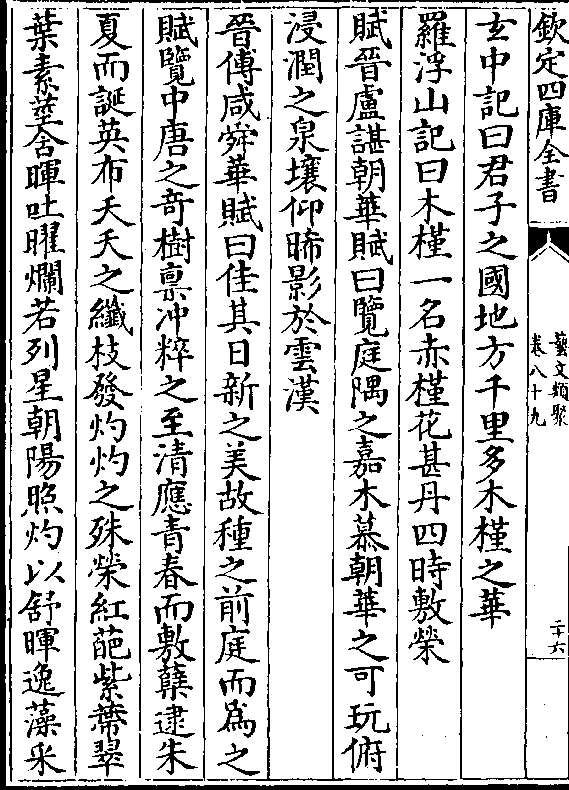 欽定四庫全書
藝文類聚
卷八十九
二十六
玄中記曰君子之國地方千里多木槿之華
羅浮山記曰木槿一名赤槿花甚丹四時敷榮
賦晉盧諶朝華賦曰覽庭隅之嘉木慕朝華之可玩俯
浸潤之泉壤仰晞影於雲漢
晉傅咸舜華賦曰佳其日新之美故種之前庭而為之
賦覽中唐之奇樹禀冲粹之至清應青春而敷蘖逮朱
夏而誕英布夭夭之纖枝發灼灼之殊榮紅葩紫蔕翠
葉素莖含暉吐曜爛若列星朝陽照灼以舒暉逸藻采